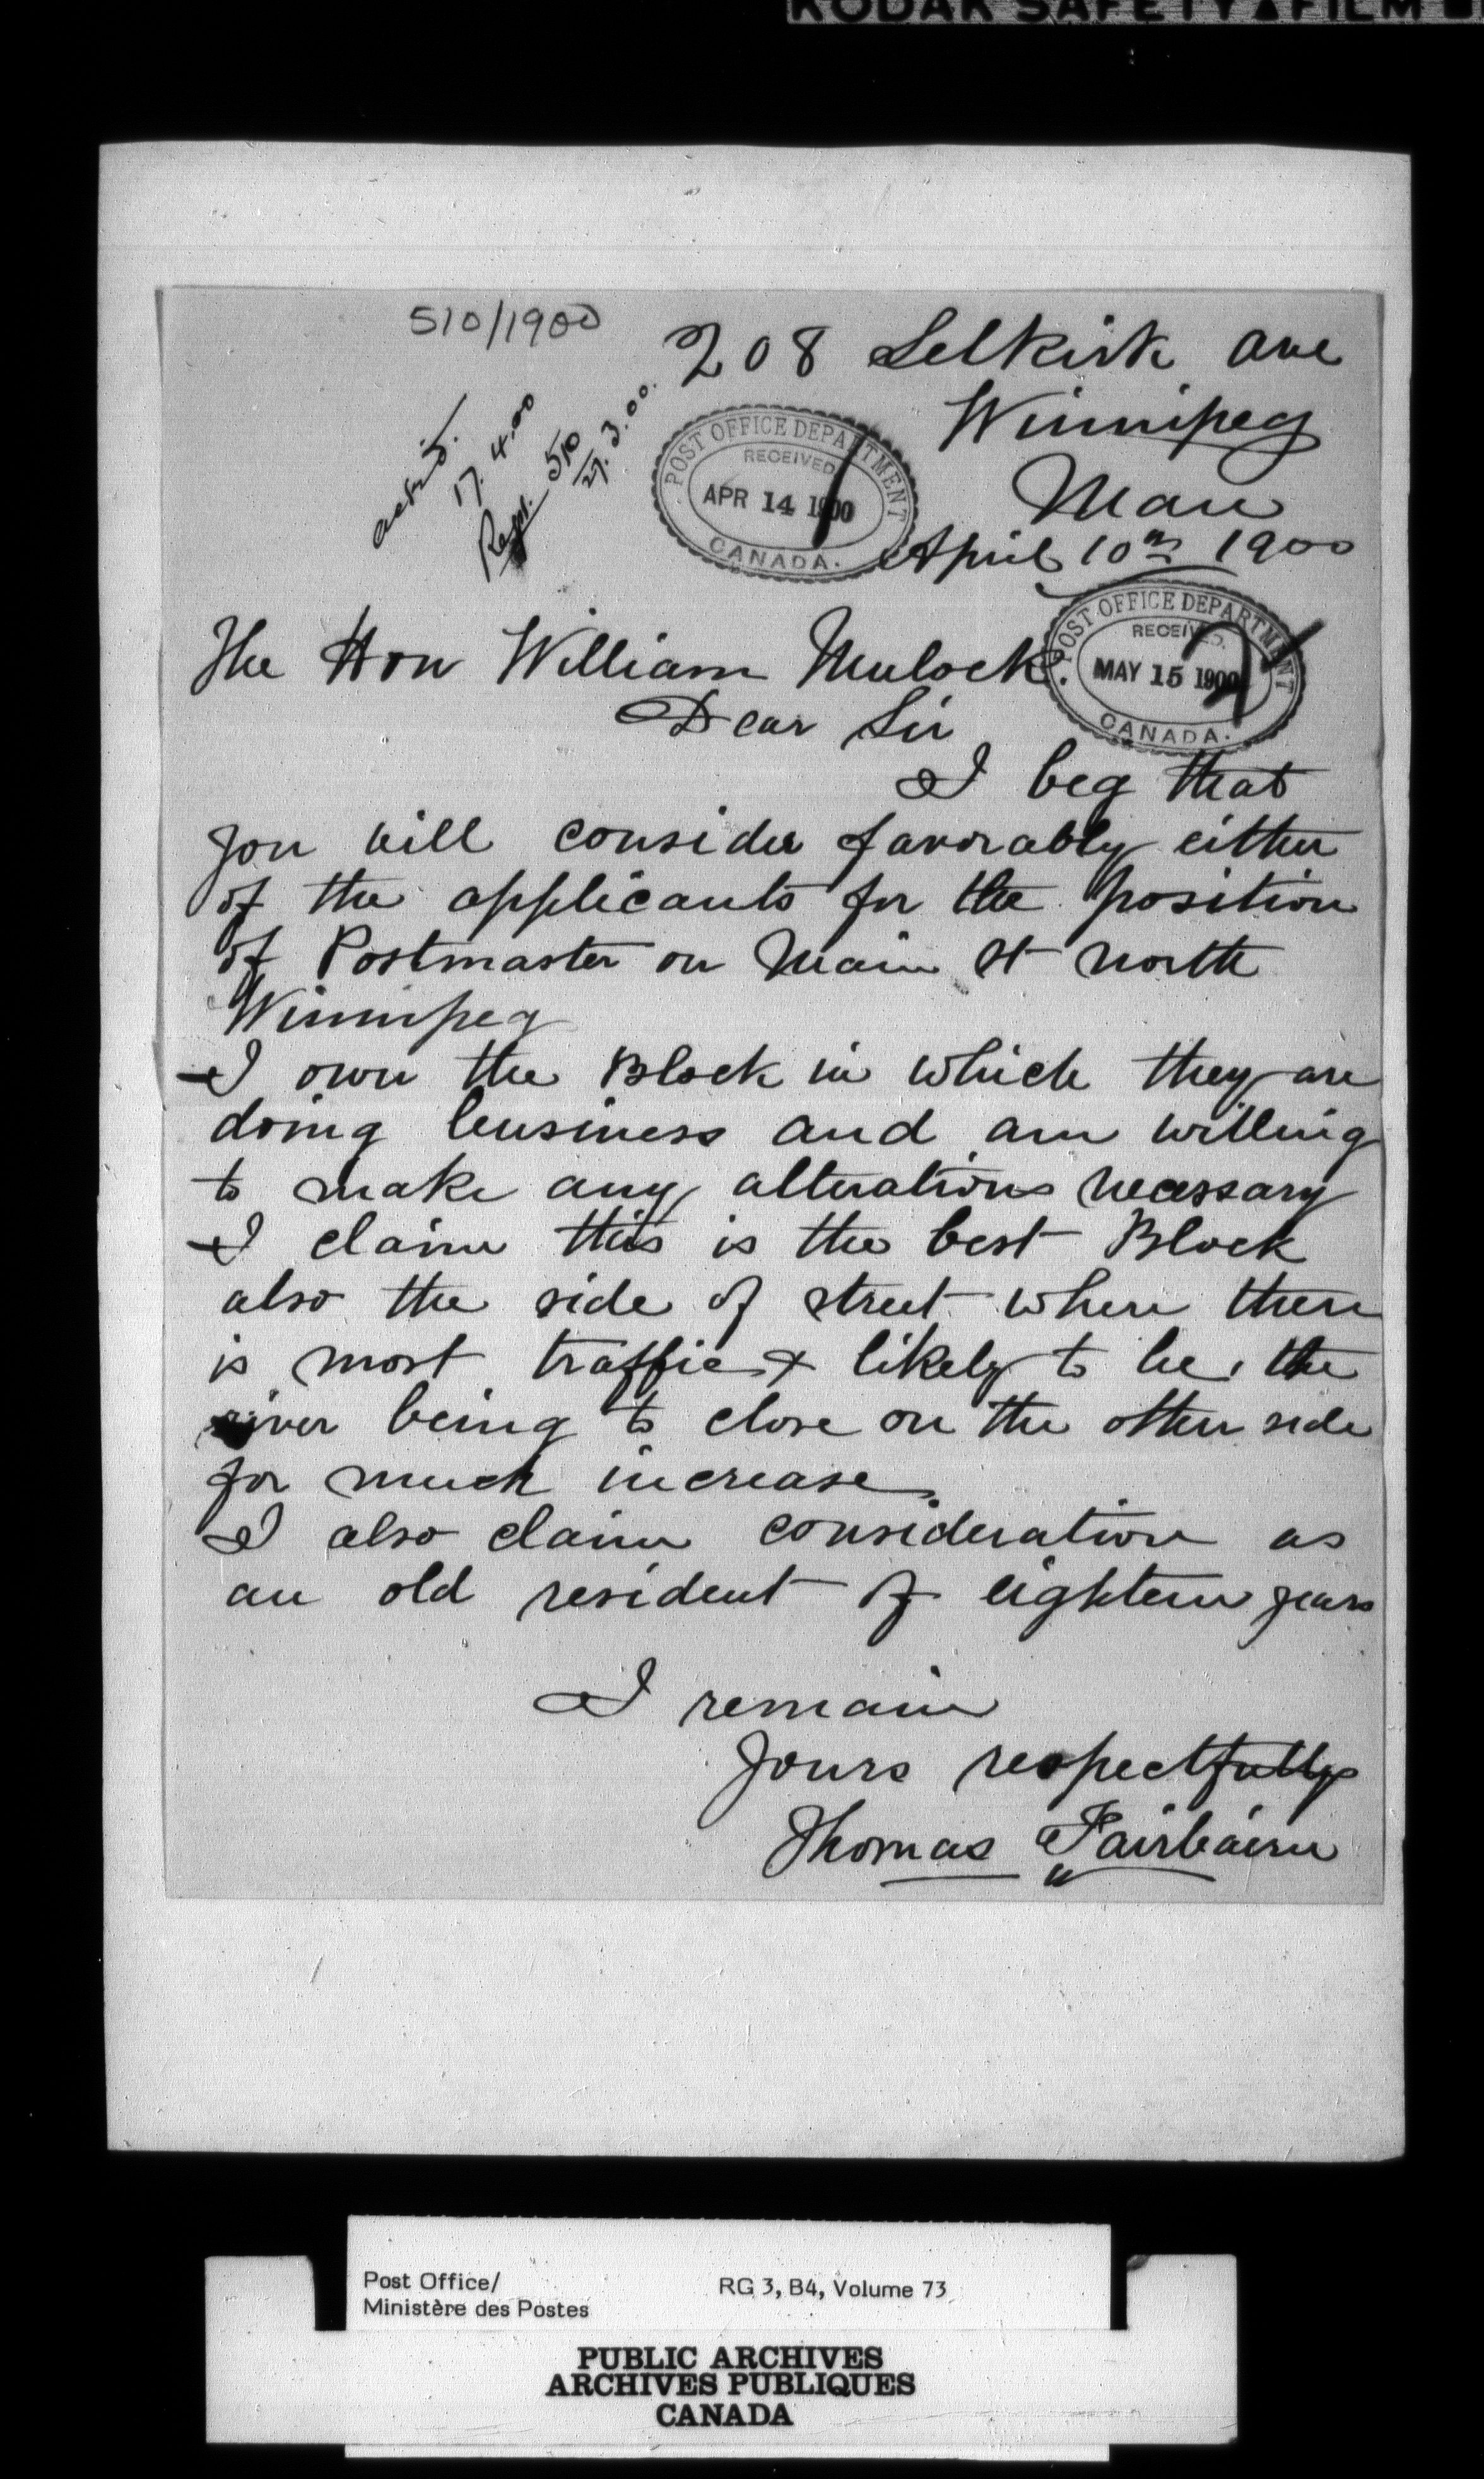 KODAK SAFETY FILM
510/1900
208 Selkirk ave
Winnipeg
Man
April 10th 1900
17.4.00
510
27.3.00.
POST OFFICE DEPARTMENT
RECEIVED
APR 14 1900
CANADA.
1
POST OFFICE DEPARTMENT
RECEIVED.
MAY 15 1900
CANADA.
2
The Hon William Mulock.
Dear Sir
I beg that
you will consider favorably either
of the applicants for the position
of Postmaster on Main St north
Winnipeg
I own the Block in which they are
doing business and am willing
to make any alterations necessary
I claim this is the best Block
also the side of street where there
is most traffic & likely to be, the
river being to close on the other side
for much increase.
I also claim consideration as
an old resident of eighteen years
I remain
Yours respectfully
Thomas Fairbairn
Post Office/
Ministère des Postes
RG 3, B4, Volume 73
PUBLIC ARCHIVES
ARCHIVES PUBLIQUES
CANADA